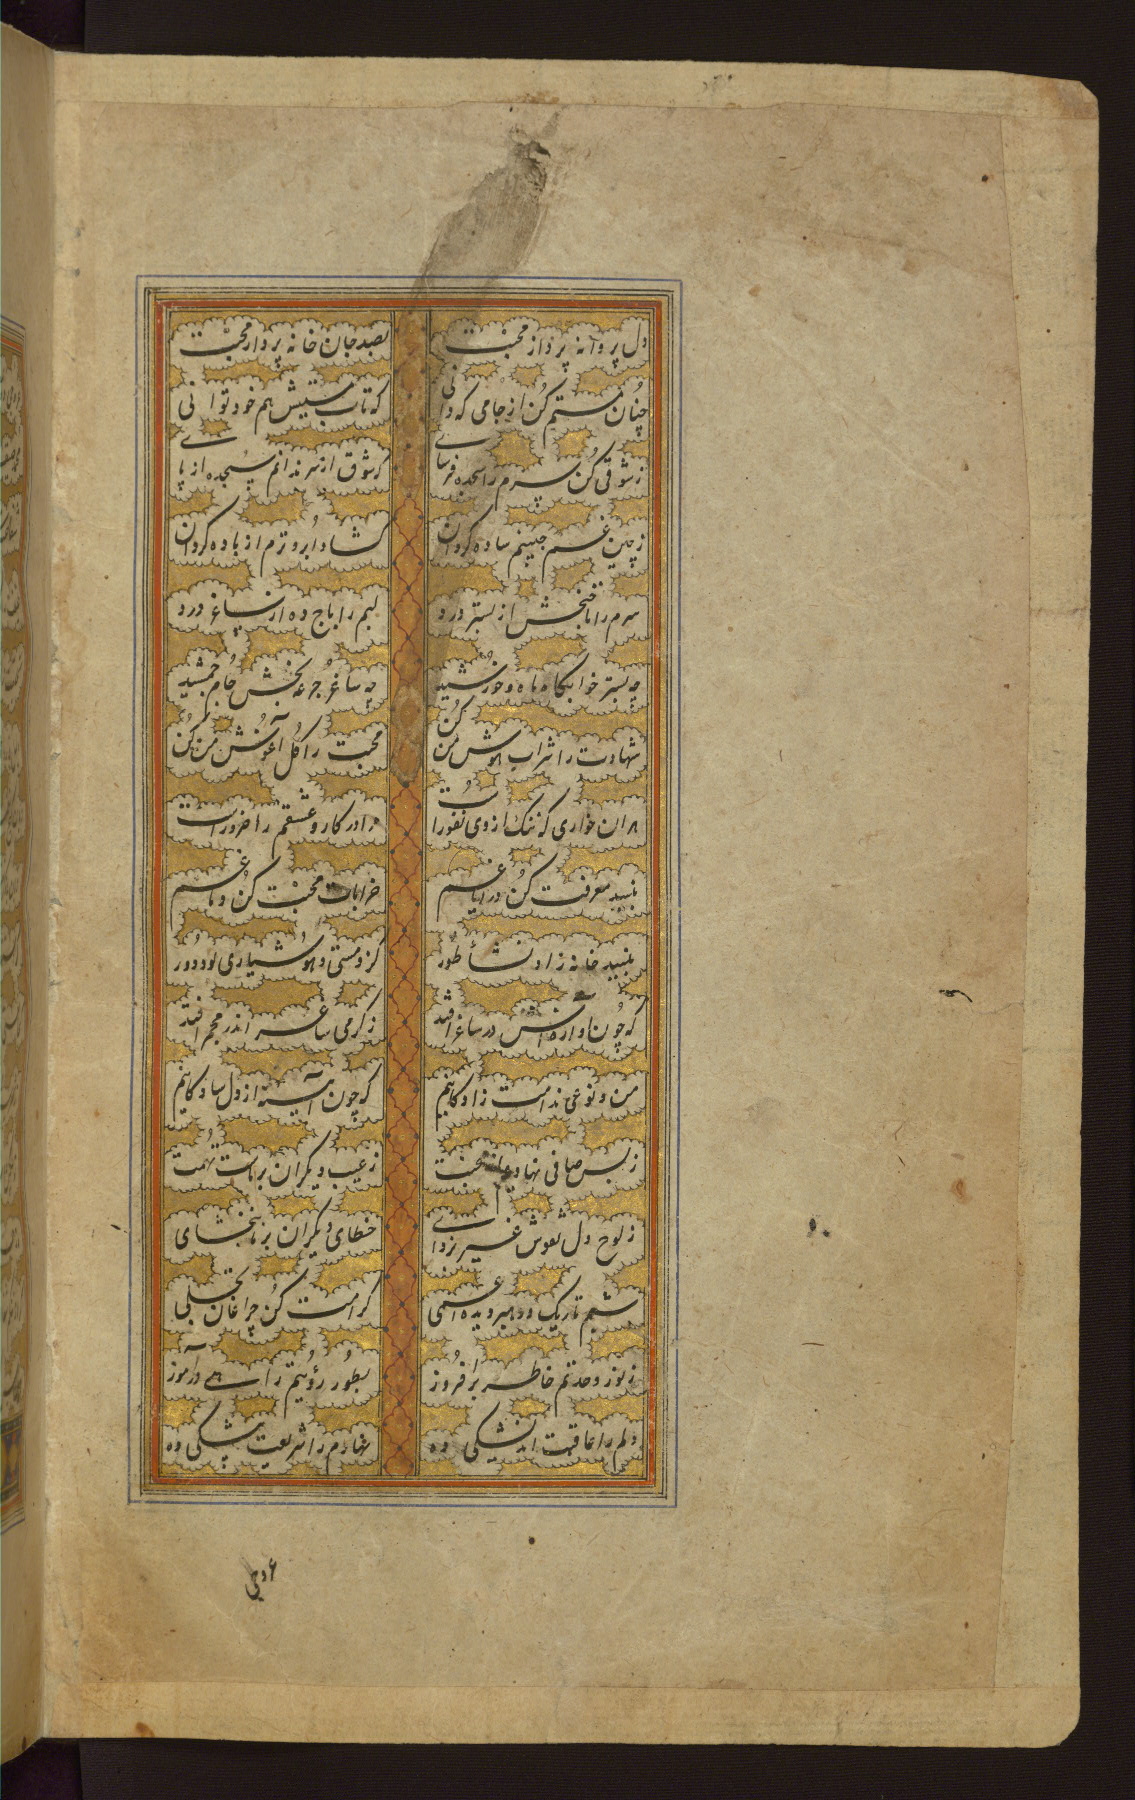 دل پروانه پرداز محبت بصد جان خانه پرداز محبت
چنان مستم کن از جامی که دانی که تاب مستیش هم خود توانی
ز شوقی کن سرم را سجده فرسای کز شوق از سر ندانم سجده از پای
ز چین غم جبینم ساده گردان گشاد ابروزم از باده گردان
سرم را تافتخش از بستر درد لبم را باج ده از ساغر درد
چه بستر خوابگاه ماه و خورشید چه ساغر جرعه بخش جام جمشید
شهادت را شراب هوش من کن محبت را گل آغوش من کن
از ان خواری که ننک از وی نفور است مرا در کار و عشقم را ضرور است
معرفت کن در ایاغم خرابات محبت کن دماغم
خانه زاد نشأ طور کزو مستی و هوشیاری بود دور
که چون آتش در ساغر افتد ز گرمی ساغر اندر مجمر افتد
من و نوعی ندامت زادگانیم که چون آیینه از دل سادگانیم
ز بس صافی نهاد ز عیب دیگران بر ماست تهمت
ز لوح دل نقوش غیر زدای خطای دیگران بر ما ببخشای
شبم تاریک و رهبر دیده اعمی کرامت کن چراغان تجلی
ز نور وحدتم خاطر برافروز بطور رؤیتم را در آموز
دلم را عاقبت اندیشگی ده نهادم را شریعت پیشگی ده